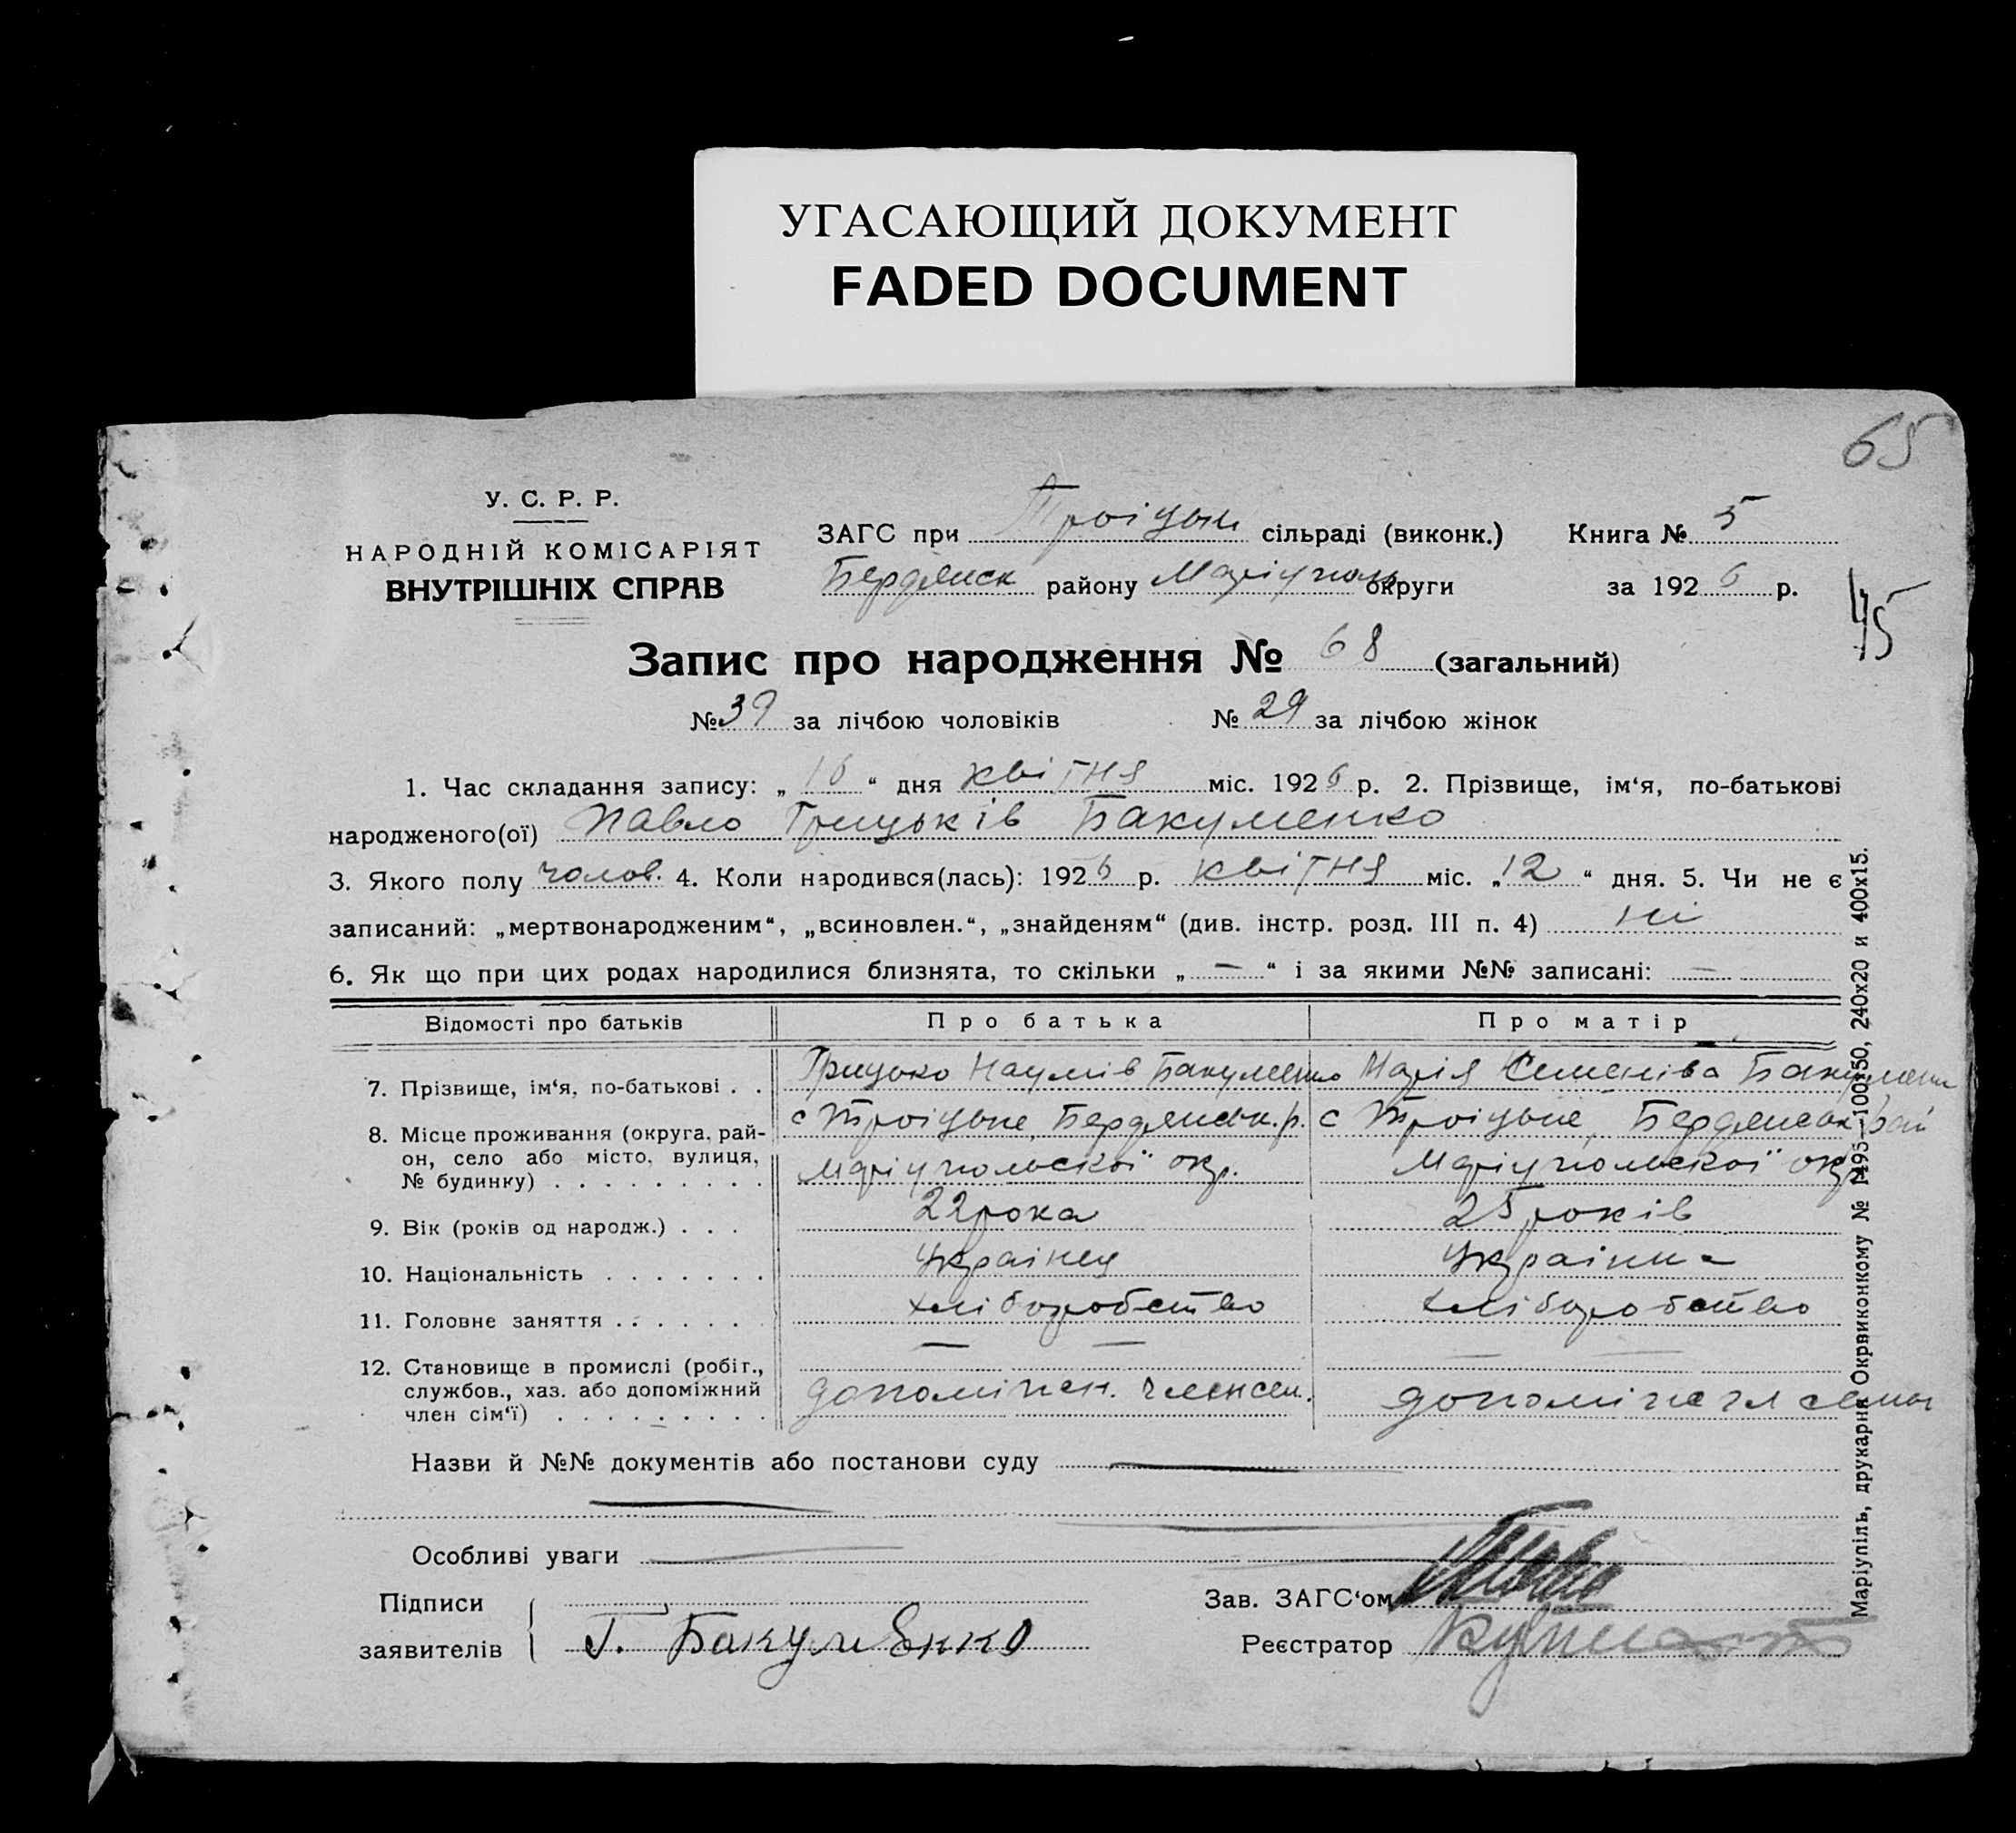 УГАСАЮЩИЙ ДОКУМЕНТ
FADED DOCUMENT
65
У. С. Р. Р.
НАРОДНІЙ КОМІСАРІЯТ
ВНУТРІШНІХ СПРАВ
ЗАГС при Троіцьк сільраді (виконк.) Книга № 5
Бердянск району Маріуполь округи за 1926 р.
45
Запис про народження № 68 (загальний)
№ 39 за лічбою чоловіків № 29 за лічбою жінок
1. Час складання запису: „ 16 “ дня квітня міс. 1926 р. 2. Прізвище, ім‘я, по-батькові
народженого(ої) Павло Грицьків Бакуменко
3. Якого полу чолов. 4. Коли народився(лась): 1926 р. квітня міс. „12“ дня. 5. Чи не є
записаний: „мертвонародженим“, „всиновлен.“, „знайденям“ (див. інстр. розд. III п. 4) ні
6. Як що при цих родах народилися близнята, то скільки „ — “ і за якими №№ записані: —
Відомості про батьків Про батька Про матір
7. Прізвище, ім‘я, по-батькові . . Грицько Наумів Бакуменко Марія Семеніва Бакуменк
8. Місце проживання (округа, рай-
он, село або місто, вулиця,
№ будинку) . . . . . . . . .
с Троіцьке, Бердянськ.р. с Троіцьке, Бердянськ рай
Маріупольскоï окр. Маріупольскоï окр
9. Вік (років од народж.) . . . 22 рока 25 років
10. Національність . . . . . . . Украінец Украінка
11. Головне заняття . . . . . . . хліборобство хліборобство
— — — —
12. Становище в промислі (робіт.,
службов., хаз. або допоміжний
член сім‘ї) . . . . . . . . .
допоміжн. член сем.
Назви й №№ документів або постанови суду
Особливі уваги
Підписи
заявителів Г. Бакуменко
Зав. ЗАГС‘ом
Реєстратор
Маріупіль, друкарня Окрвиконкому № 1493—100×50, 240х20 и 400х15.